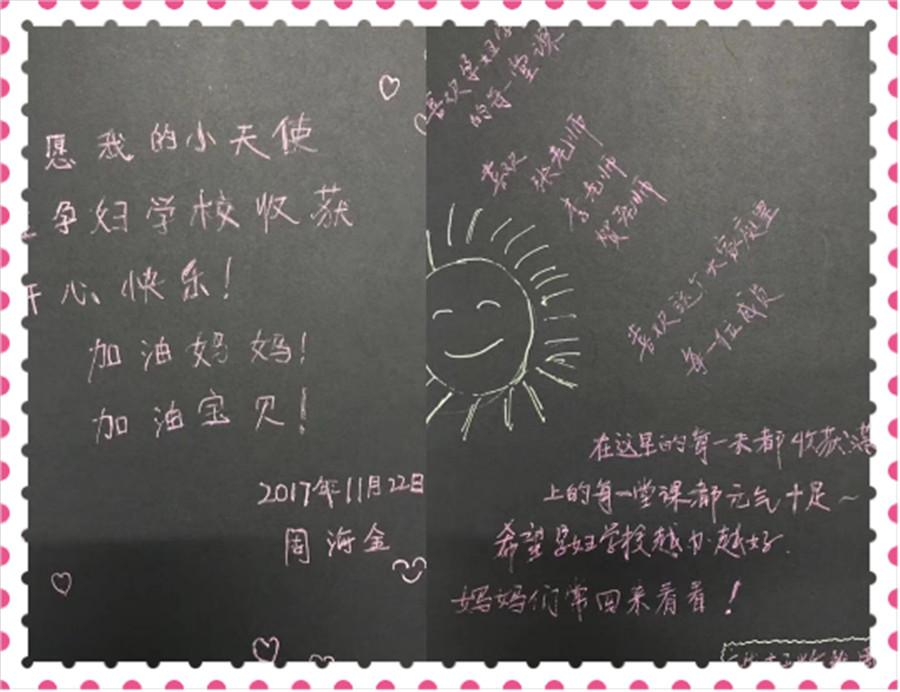 愿我的小天使
孕妇学校收获
开心快乐!
加油妈妈!
加油宝贝!
2017年11月22日
周海金
喜欢孕妇学
的每一堂课
喜欢
张老师
李老师
贺老师
喜欢这个大家庭里
每一位成员
在这里的每一天都收获满
上的每一堂课都元气十足~
希望孕妇学校越办越好.
妈妈们常回来看看!